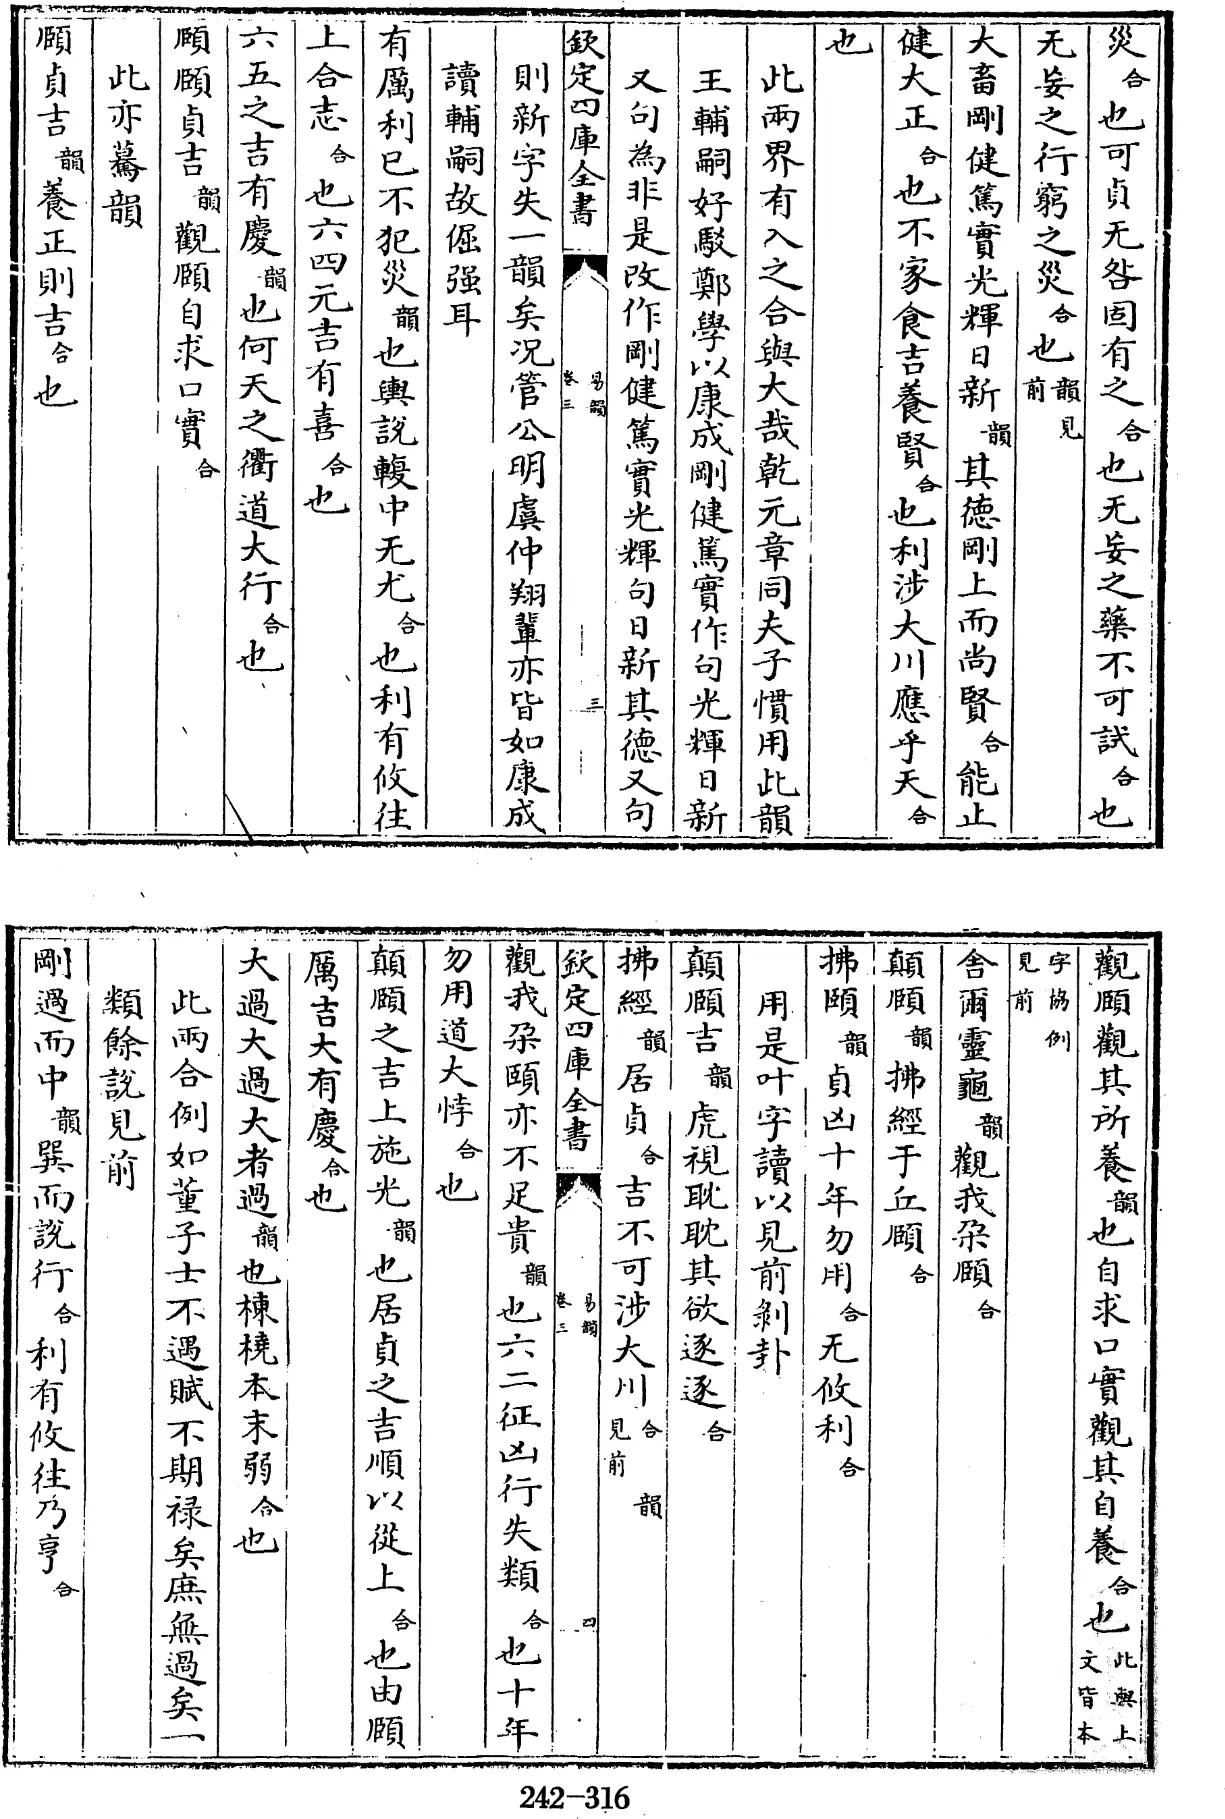 災合也可貞无咎固有之合也无妄之藥不可試合也
无妄之行窮之災合也韻見前
大畜剛健篤實光輝日新韻其德剛上而尚賢合能止
健大正合也不家食吉養賢合也利涉大川應乎天合
也
此兩界有入之合與大哉乾元章同夫子慣用此韻
王輔嗣好駁鄭學以康成剛健篤實作句光輝日新
又句為非是改作剛健篤實光輝句日新其德又句
欽定四庫全書
易韻
卷三
三
則新字失一韻矣况管公明虞仲翔輩亦皆如康成
讀輔嗣故倔强耳
有厲利已不犯災韻也輿說輹中无尤合也利有攸往
上合志合也六四元吉有喜合也
六五之吉有慶韻也何天之衢道大行合也
頤頤貞吉韻觀頤自求口實合
此亦驀韻
頤貞吉韻養正則吉合也
觀頤觀其所養韻也自求口實觀其自養合也此與上文皆本
字協例見前
舍爾靈龜韻觀我朵頤合
顛頤韻拂經于丘頤合
拂頤韻貞凶十年勿用合无攸利合
用是叶字讀以見前剝卦
顛頤吉韻虎視耽耽其欲逐逐合
拂經韻居貞合吉不可涉大川合韻見前
欽定四庫全書
易韻
卷三
四
觀我朵頤亦不足貴韻也六二征凶行失類合也十年
勿用道大悖合也
顛頤之吉上施光韻也居貞之吉順以從上合也由頤
厲吉大有慶合也
大過大過大者過韻也棟橈本末弱合也
此兩合例如董子士不遇賦不期祿矣庶無過矣一
類餘說見前
剛過而中韻巽而說行合利有攸往乃亨合
242-316